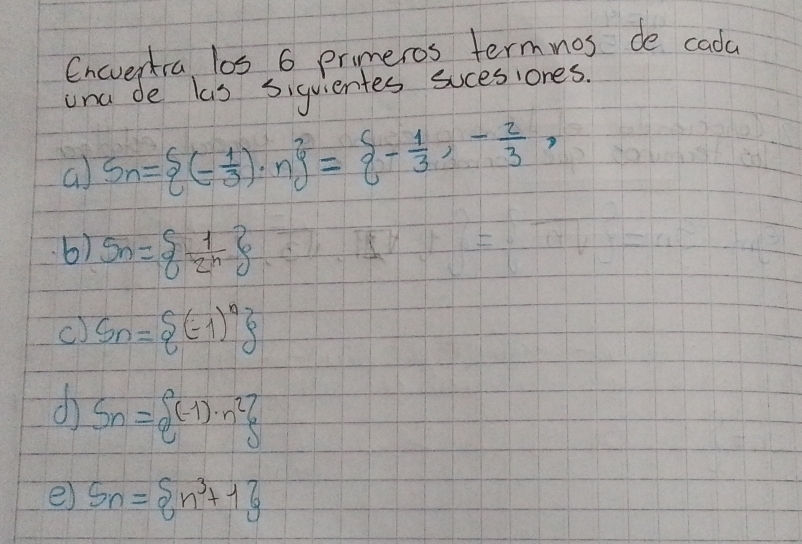 Encuentra los 6 primeros terminos de cada
una de las siguientes sucesiones.
a) Sn={(-1/3)·n}={-1/3, -2/3,
b) Sn={1/2ⁿ}
c) Sn={(-1)ⁿ}
d) Sn={(-1)·n²}
e) Sn={n³+1}